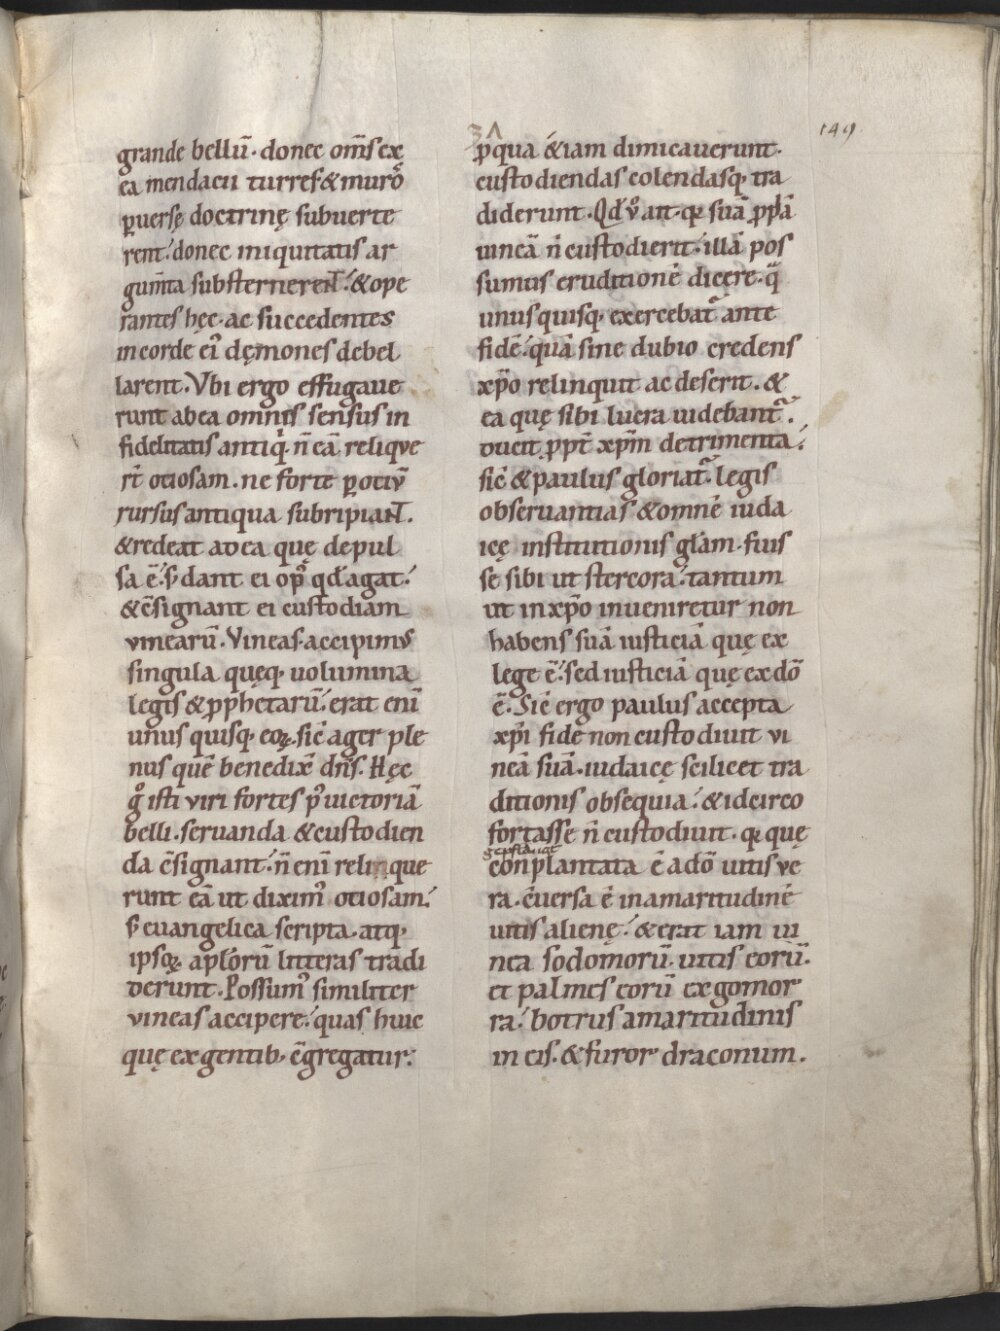 149
grande bellū· donec om̄s ex
ea mendacii turres· & muro᷒
ꝑuersę doctrinę subuerte
rent·́ donec iniquitatis ar
gum̄ta substernerent·́ & ope
rantes hęc· ac succedentes
in corde ei᷒ dęmones debel
larent. Vbi ergo effugaue
runt ab ea omnis sensus in
fidelitatis antiq· n̄ eā relique
rt̄ otiosam. ne forte ꝑ otiū
rursus antiqua subripiant.
& redeat ad ea quę depul
sa ē· s; dant ei op᷒ qd̄ agat·́
& c̄signant ei custodiam
vinearū. Vineas accipimus
singula quęq· uolumina
legis & ꝓphetarū·́ erat eni᷒
unus quisq· eoꝝ sic̄ ager ple
nus quē benedix̄ dn̄s. Hęc
gͦ isti viri fortes p᷒ uictoriā
belli· seruanda & custodien
da c̄signant·́ n̄ eni᷒ relinque
runt eā ut dixim᷒ otiosam·́
s; euangelica scripta· atq·
ipsoꝝ apl̄orū litteras tradi
derunt. Possum᷒ similiter
vineas accipere·́ quas huic
quę ex gentib· c̄gregatur·́
ꝓ qua & iam dimicauerunt·
custodiendas colendasq· tra
diderunt. Qd̄ v̊ ait· qr suā ꝓpā
uineā n̄ custodierit·́ illā pos
sumus eruditionē dicere· qᷓ
unus quisq· exercebat᷑ ante
fidē·́ quā sine dubio credens
xp̄o relinquit ac deserit. &
ea quę sibi lucra uidebant᷑·
ducit ꝓpt̄ xp̄m detrimenta·́
sic̄ & paulus gloriat᷑ legis
obseruantias & omnē iuda
icę institutionis gl̄am· fuis
se sibi ut stercora·́ tantum
ut in xp̄o inueniretur non
habens suā iusticiā quę ex
lege ē·́ sed iusticiā quę ex dō
ē. Sic̄ ergo paulus accepta
xp̄i fide non custodiuit vi
neā suā· iudaicę scilicet tra
ditionis obsequia·́ & idcirco
fortasse n̄ custodiuit· qr quę
conplantata ē a dō uitis ve
ra· c̄uersa ē in amaritudinē
uitis alienę·́ & erat iam ui
nea sodomorū· uitis eorū·
et palmes eorū ex gomor
ra·́ botrus amaritudinis
in eis· & furor draconum.